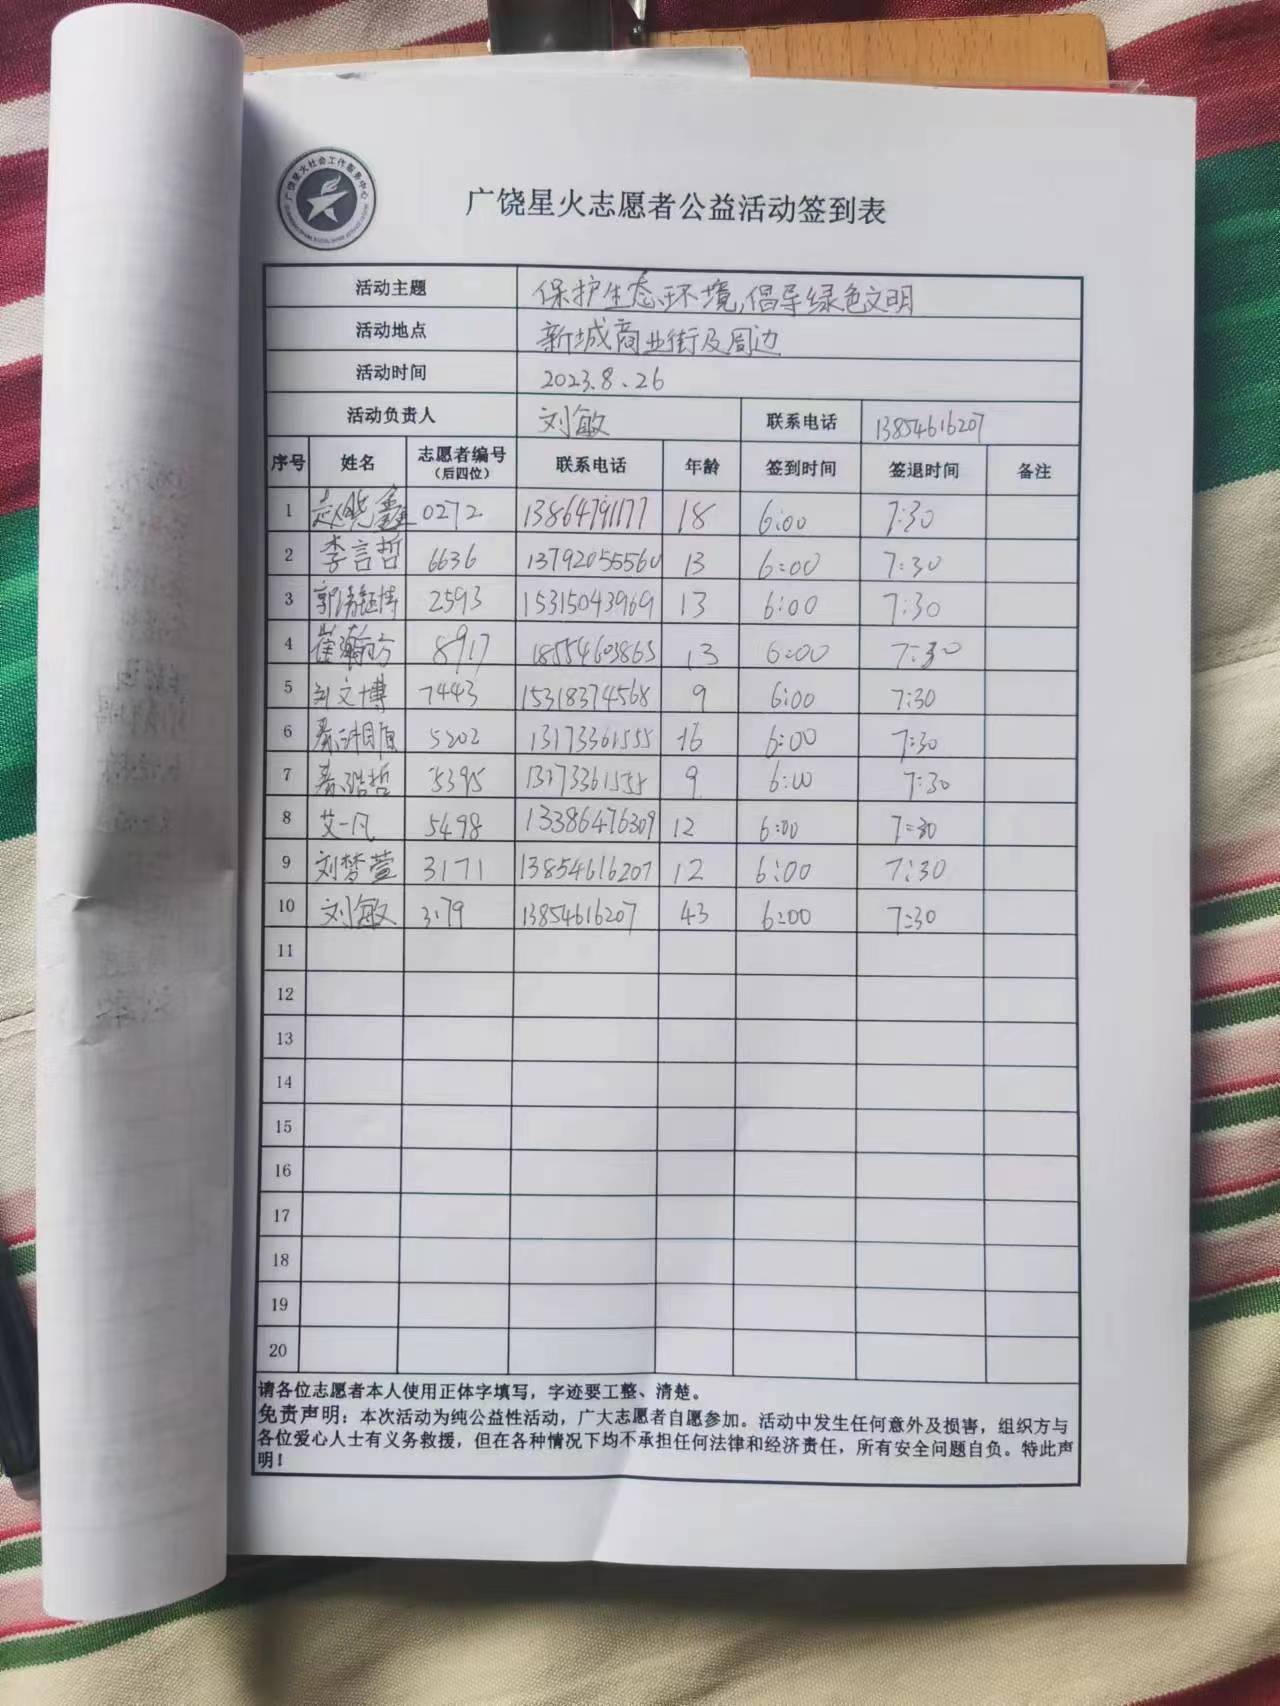 广饶星火社会工作服务中心
广饶星火志愿者公益活动签到表
活动主题 保护生态环境,倡导绿色文明
活动地点 新城商业街及周边
活动时间 2023.8.26
活动负责人 刘敏 联系电话 13854616207
序号 姓名 志愿者编号（后四位） 联系电话 年龄 签到时间 签退时间 备注
1 赵晓鑫 0272 13864791177 18 6:00 7:30
2 李言哲 6636 13792055560 13 6:00 7:30
3 2593 15315043969 13 6:00 7:30
4 崔瀚方 8917 18554603865 13 6:00 7:30
5 刘文博 7443 15318374568 9 6:00 7:30
6 5202 13173361555 16 6:00 7:30
7 5395 13173361555 9 6:00 7:30
8 艾一凡 5498 13386476309 12 6:00 7:30
9 刘梦萱 3171 13854616207 12 6:00 7:30
10 刘敏 3179 13854616207 43 6:00 7:30
11
12
13
14
15
16
17
18
19
20
请各位志愿者本人使用正体字填写，字迹要工整、清楚。
免责声明：本次活动为纯公益性活动，广大志愿者自愿参加。活动中发生任何意外及损害，组织方与
各位爱心人士有义务救援，但在各种情况下均不承担任何法律和经济责任，所有安全问题自负。特此声
明！